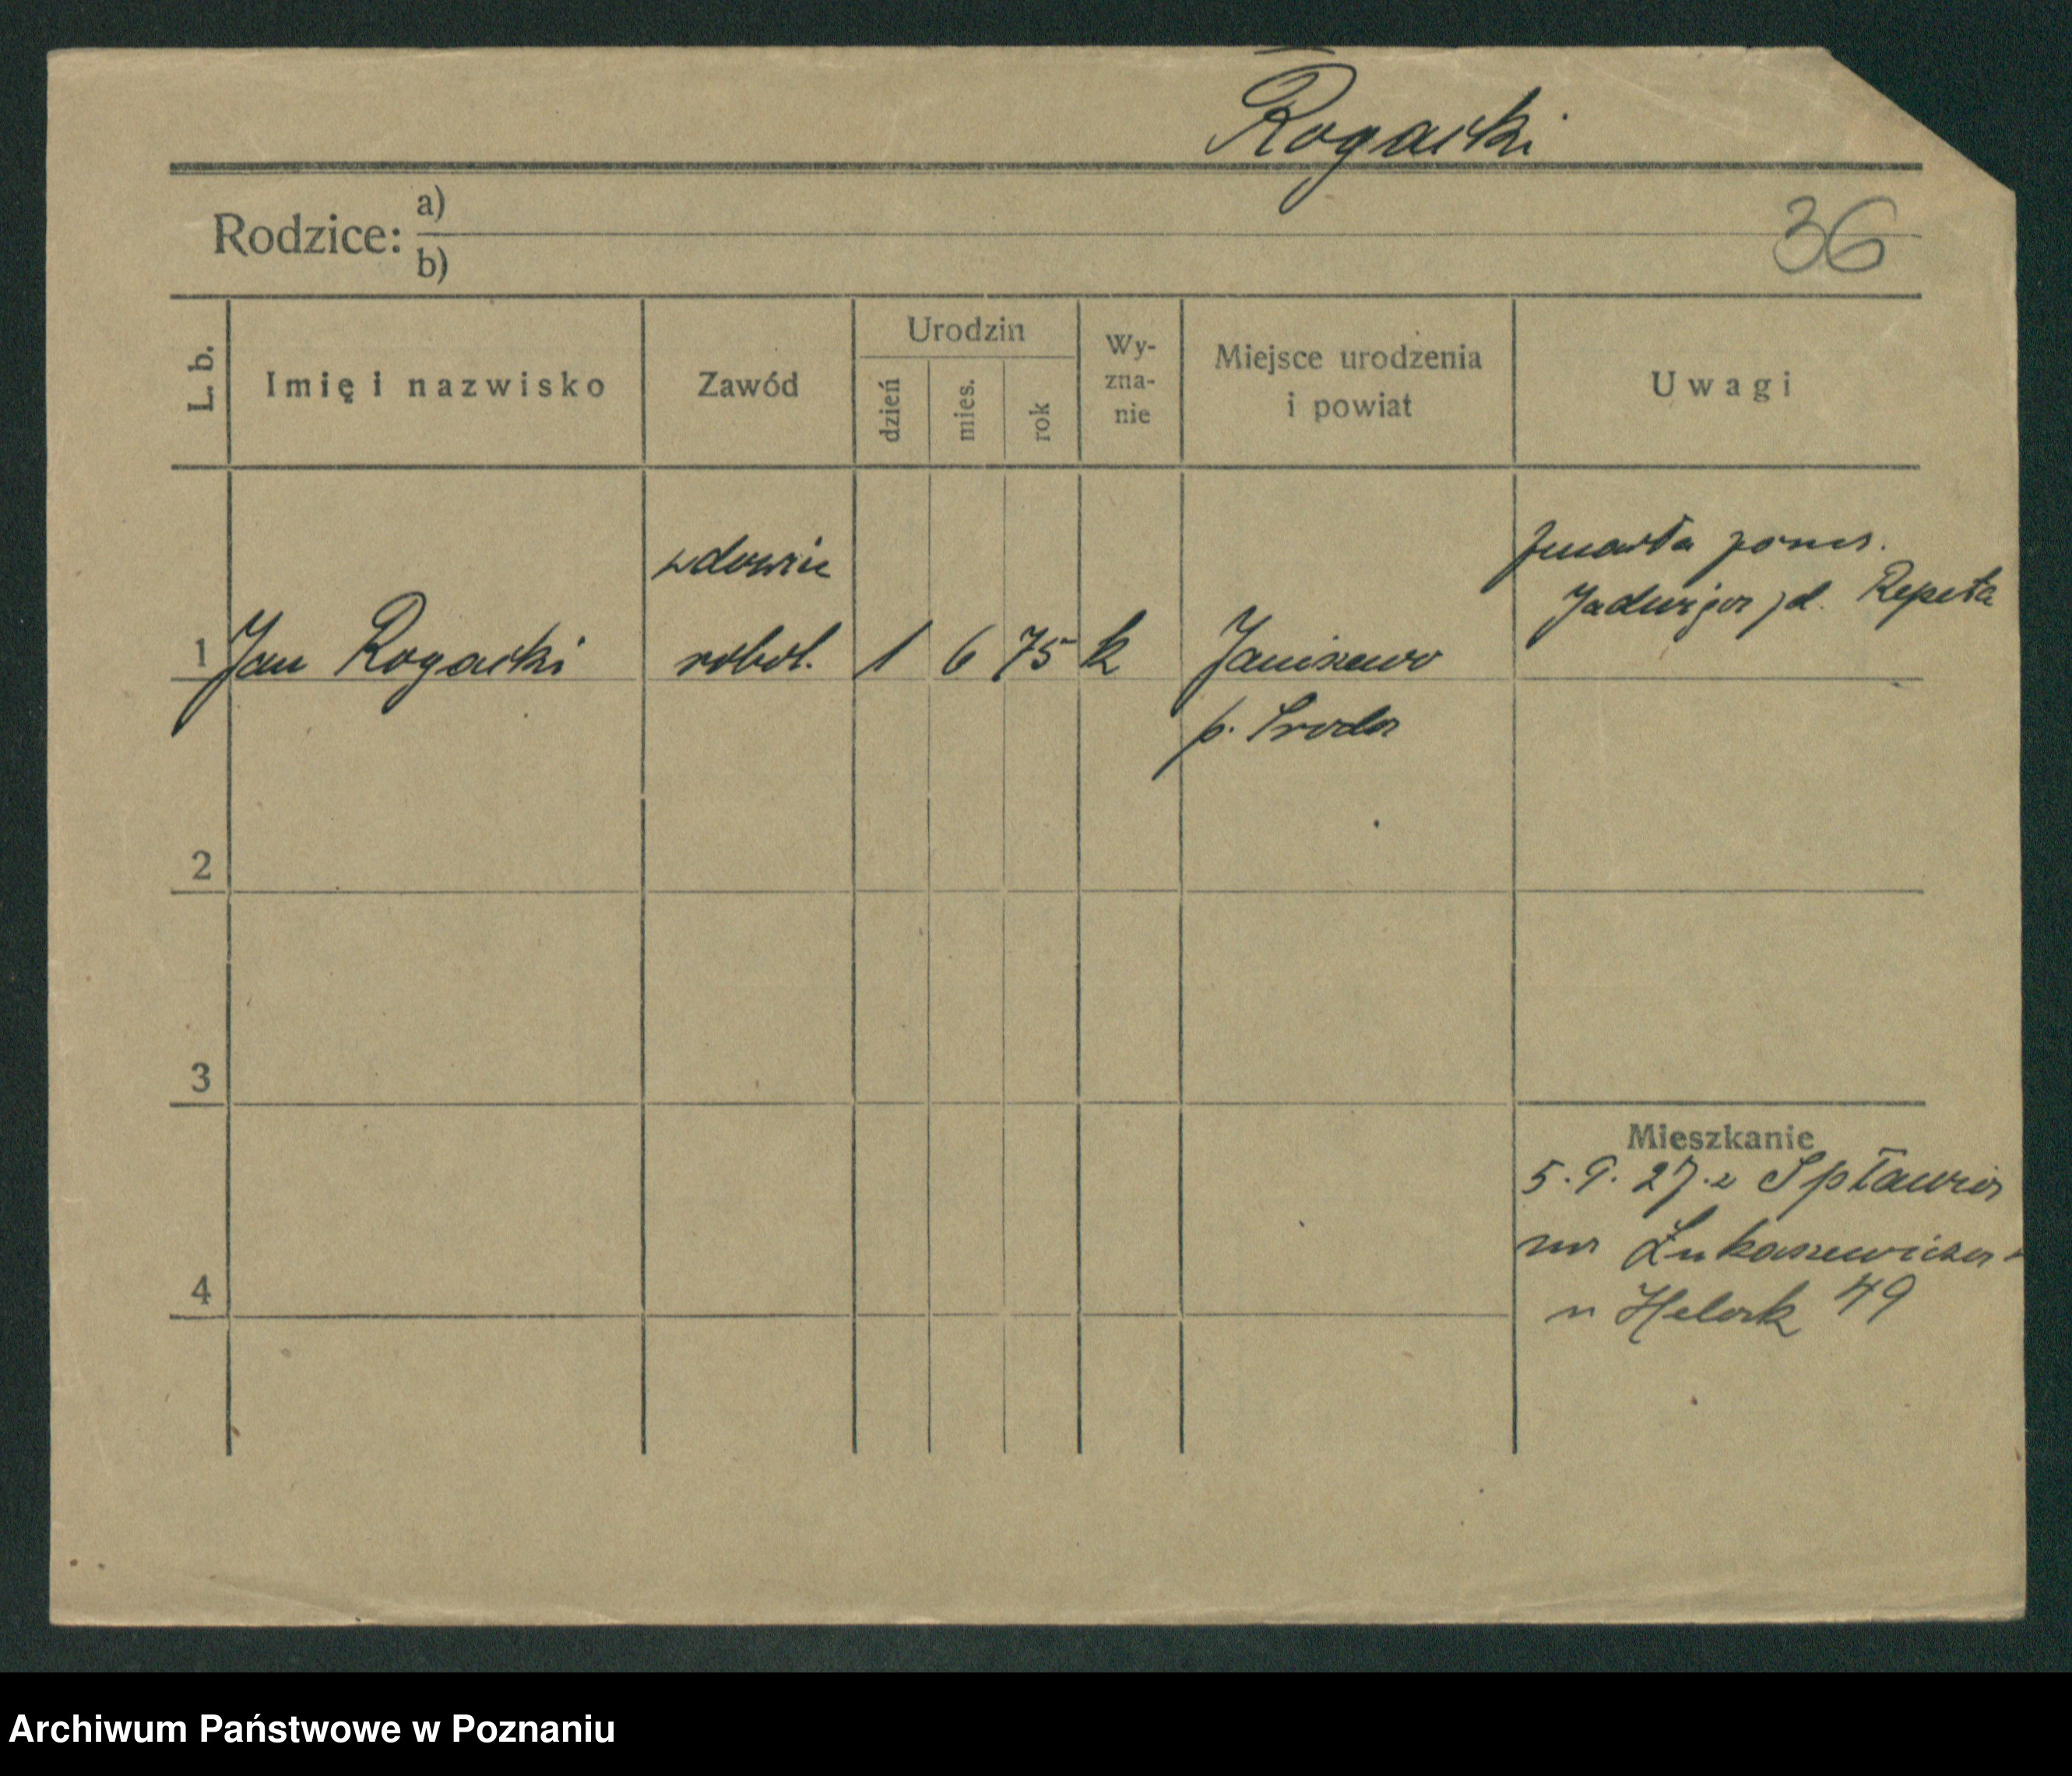 Rogacki
Rodzice: a)
b)
36
L. b.
Imię i nazwisko
Zawód
Urodzin
dzień
mies.
rok
Wy-
zna-
nie
Miejsce urodzenia
i powiat
Uwagi
1 Jan Rogacki
wdowiec
robot.
1 6 75 k
Janiszewo
p. Środa
zmarła
Jadwiga Repeta
2
3
4
Mieszkanie
5.9.27. z Spławia
na Łukaszewicza
49
Archiwum Państwowe w Poznaniu